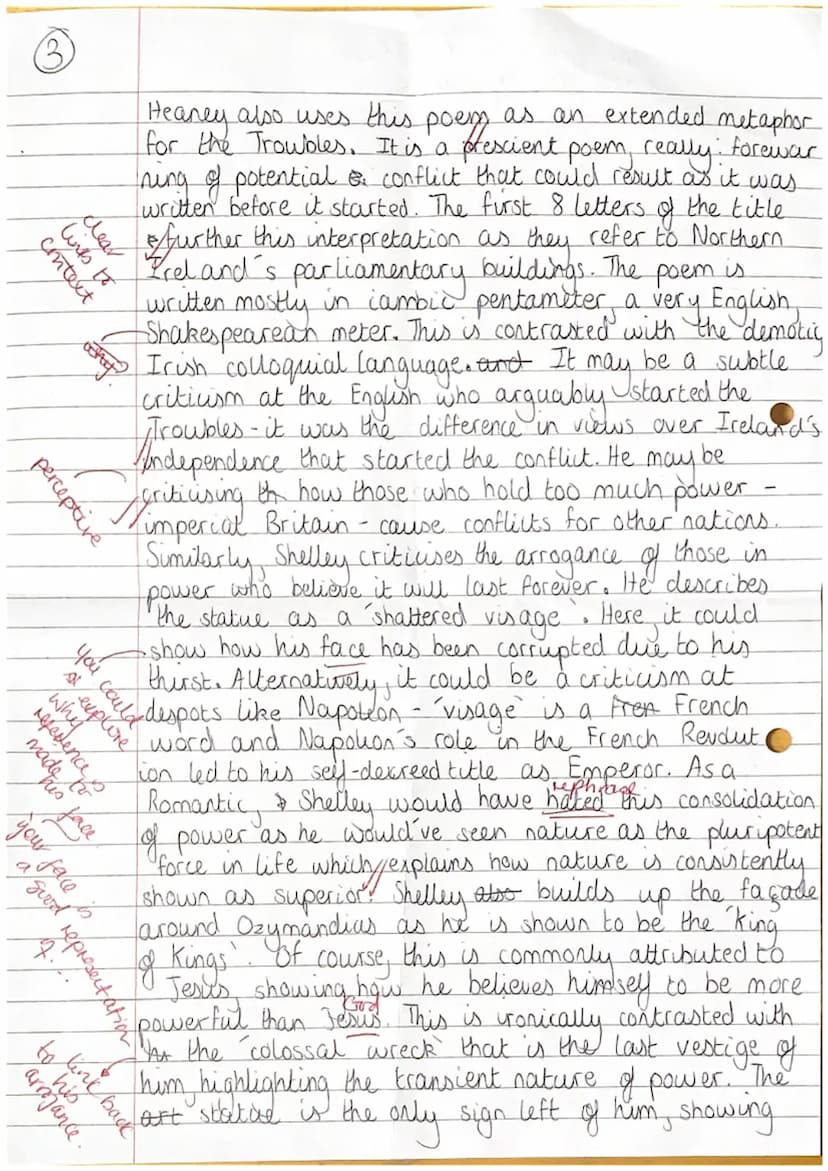 3
Heaney also uses this poem as an extended metaphor
for the Troubles. It is a prescient poem, really: forewar
ning of potential conflict that could result as it was
written before it started. The first 8 letters of the title
further this interpretation as they refer to Northern
Ireland's parliamentary buildings. The poem is
written mostly in iambic pentameter, a very English,
Shakespearean meter. This is contrasted with the demotic,
Irish colloquial language. and It may be a subtle
criticism at the English who arguably started the
Troubles - it was the difference in views over Ireland's
independence that started the conflict. He may be
criticising th how those who hold too much power -
imperial Britain - cause conflicts for other nations.
Similarly, Shelley criticises the arrogance of those in
power who believe it will last forever. He describes
the statue as a 'shattered visage'. Here, it could
show how his face has been corrupted due to his
thirst. Alternatively, it could be a criticism at
despots like Napoleon - 'visage' is a Fren French
word and Napoleon's role in the French Revolut
ion led to his self-decreed title as Emperor. As a
rephrase
Romantic, Shelley would have hated this consolidation
of power as he would've seen nature as the pluripotent
force in life which explains how nature is consistently
shown as superior. Shelley also builds up the façade
around Ozymandias as he is shown to be the 'King
of Kings'. Of course, this is commonly attributed to
Jesus, showing how he believes himself to be more
God
powerful than Jesus. This is ironically contrasted with
the 'colossal wreck' that is the last vestige of
him, highlighting the transient nature of power. The
art statue is the only sign left of him, showing
clear
links to
context
why?
perceptive
you could
explore
why
reference is
made to
his face
your face is
a good representation
of...
to link back
to his
arrogance.